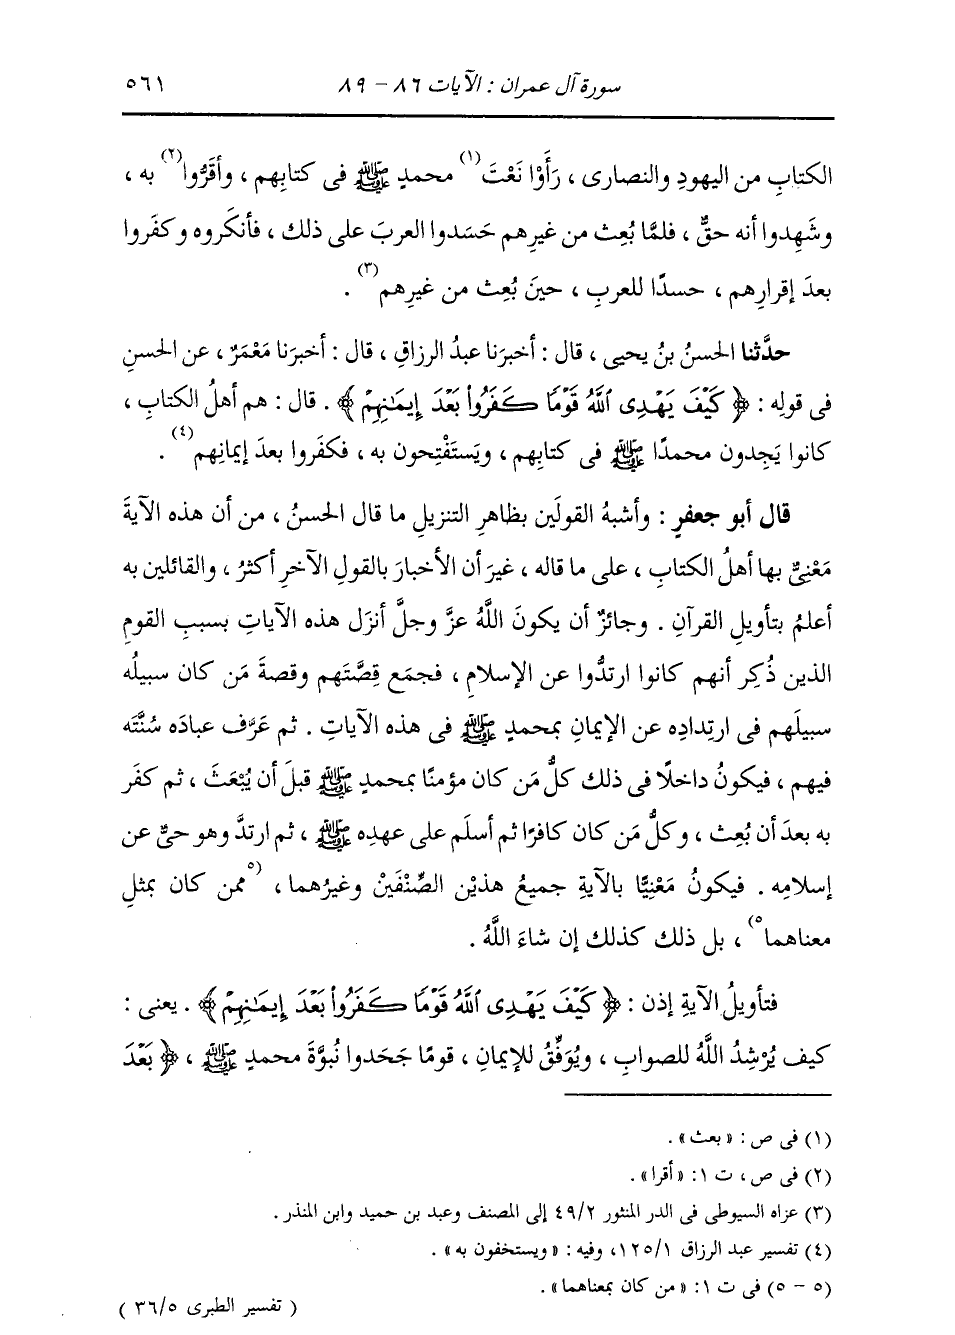 سورة آل عمران : الآيات ٨٦ - ٨٩ ٥٦١
الكتابِ من اليهودِ والنصارى ، رَأَوْا نَعْتَ(١) محمدٍ ﷺ فى كتابِهم ، وأقَرُّوا(٢) به ،
وشَهِدوا أنه حقٌّ ، فلمَّا بُعِث من غيرِهم حَسَدوا العربَ على ذلك ، فأنكَروه وكفَروا
بعدَ إقرارِهم ، حسدًا للعربِ ، حينَ بُعِث من غيرِهم(٣) .
حدَّثنا الحسنُ بنُ يحيى ، قال : أخبرَنا عبدُ الرزاقِ ، قال : أخبرَنا مَعْمَرٌ ، عن الحسنِ
فى قولِه : ﴿ كَيْفَ يَهْدِى ٱللَّهُ قَوْمًا كَفَرُواْ بَعْدَ إِيمَـٰنِهِمْ ﴾ . قال : هم أهلُ الكتابِ ،
كانوا يَجِدون محمدًا ﷺ فى كتابِهم ، ويَستَفْتِحون به ، فكفَروا بعدَ إيمانِهم(٤) .
قال أبو جعفرٍ : وأشبهُ القولَين بظاهرِ التنزيلِ ما قال الحسنُ ، من أن هذه الآيةَ
مَعْنىٌّ بها أهلُ الكتابِ ، على ما قاله ، غيرَ أن الأخبارَ بالقولِ الآخرِ أكثرُ ، والقائلين به
أعلمُ بتأويلِ القرآنِ . وجائزٌ أن يكونَ اللَّهُ عزَّ وجلَّ أنزَل هذه الآياتِ بسببِ القومِ
الذين ذُكِر أنهم كانوا ارتدُّوا عن الإسلامِ ، فجمَع قِصَّتَهم وقصةَ مَن كان سبيلُه
سبيلَهم فى ارتِدادِه عن الإيمانِ بمحمدٍ ﷺ فى هذه الآياتِ . ثم عَرَّف عبادَه سُنَّتَه
فيهم ، فيكونُ داخلًا فى ذلك كلُّ مَن كان مؤمنًا بمحمدٍ ﷺ قبلَ أن يُبْعَثَ ، ثم كفَر
به بعدَ أن بُعِث ، وكلُّ مَن كان كافرًا ثم أسلَم على عهدِه ﷺ ، ثم ارتدَّ وهو حىٌّ عن
إسلامِه . فيكونُ مَعْنِيًّا بالآيةِ جميعُ هذيْن الصِّنْفَيْن وغيرُهما ، (٥ ممن كان بمثلِ
معناهما ٥) ، بل ذلك كذلك إن شاءَ اللَّهُ .
فتأويلُ الآيةِ إذن : ﴿ كَيْفَ يَهْدِى ٱللَّهُ قَوْمًا كَفَرُواْ بَعْدَ إِيمَـٰنِهِمْ ﴾ . يعنى :
كيف يُرْشِدُ اللَّهُ للصوابِ ، ويُوَفِّقُ للإيمانِ ، قومًا جَحَدوا نُبوَّةَ محمدٍ ﷺ ، ﴿ بَعْدَ
(١) فى ص : « بعث » .
(٢) فى ص ، ت ١ : « أقرا » .
(٣) عزاه السيوطى فى الدر المنثور ٤٩/٢ إلى المصنف وعبد بن حميد وابن المنذر .
(٤) تفسير عبد الرزاق ١٢٥/١ ، وفيه : « ويستخفون به » .
(٥ - ٥) فى ت ١ : « من كان بمعناهما » .
( تفسير الطبرى ٣٦/٥ )